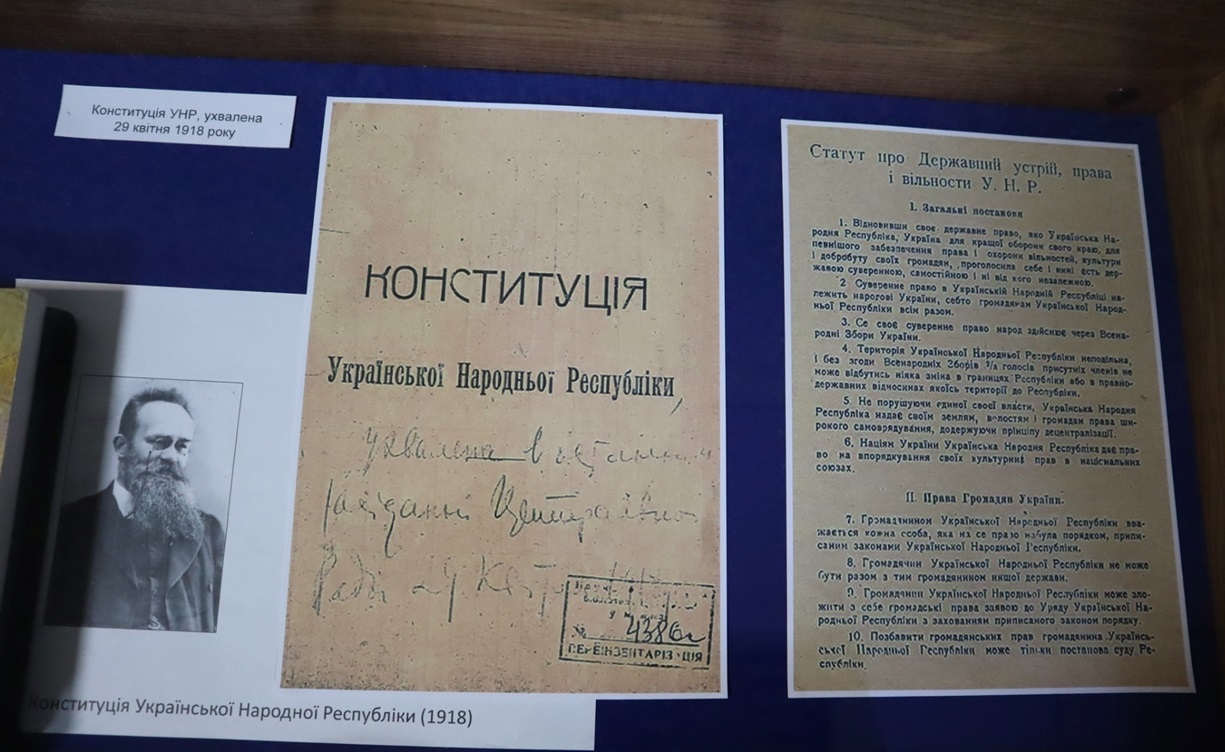 Конституція УНР, ухвалена
29 квітня 1918 року
КОНСТИТУЦІЯ
Української Народньої Республіки
ухвалена в останнім
засіданні Центральної
Ради 29 Квіт
4386
ПЕРЕІНВЕНТАРІЗ ЦІЯ
Конституція Української Народної Республіки (1918)
Статут про Державний устрій, права
і вільности У. Н. Р.
I. Загальні постанови
1. Відновивши своє державне право, яко Українська На-
родня Республіка, Україна для кращої оборони свого краю, для
певнішого забезпечення права і охорони вільностей, культури
і добробуту своїх громадян, проголосила себе і нині єсть дер-
жавою суверенною, самостійною і ні від кого незалежною.
2 Суверенне право в Українській Народній Республіці на-
лежить народові України, себто громадянам Української Народ-
ньої Республіки всім разом.
3. Се своє суверенне право народ здійснює через Всена-
родні Збори України.
4. Територія Української Народньої Республіки неподільна,
і без згоди Всенародніх Зборів ²/₃ голосів присутніх членів не
може відбутись ніяка зміна в границях Республіки або в правно-
державних відносинах якоїсь території до Республіки.
5. Не порушуючи єдиної своєї власти, Українська Народня
Республіка надає своїм землям, волостям і громадам права ши-
рокого самоврядування, додержуючи прінціпу децентралізації.
6. Націям України Українська Народня Республіка дає пра-
во на впорядкування своїх культурних прав в національних
союзах.
II. Права Громадян України.
7. Громадянином Української Народньої Республіки вва-
жається кожна особа, яка на се право набула порядком, припи-
саним законами Української Народньої Республіки.
8. Громадянин Української Народньої Республіки не може
бути разом з тим громадянином иншої держави.
9. Громадянин Української Народньої Республіки може зло-
жити з себе громадські права заявою до Уряду Української На-
родньої Республіки з захованням приписаного законом порядку.
10. Позбавити громадянських прав громадянина Українсь-
ської Народньої Республіки може тільки постанова суду Ре-
спубліки.